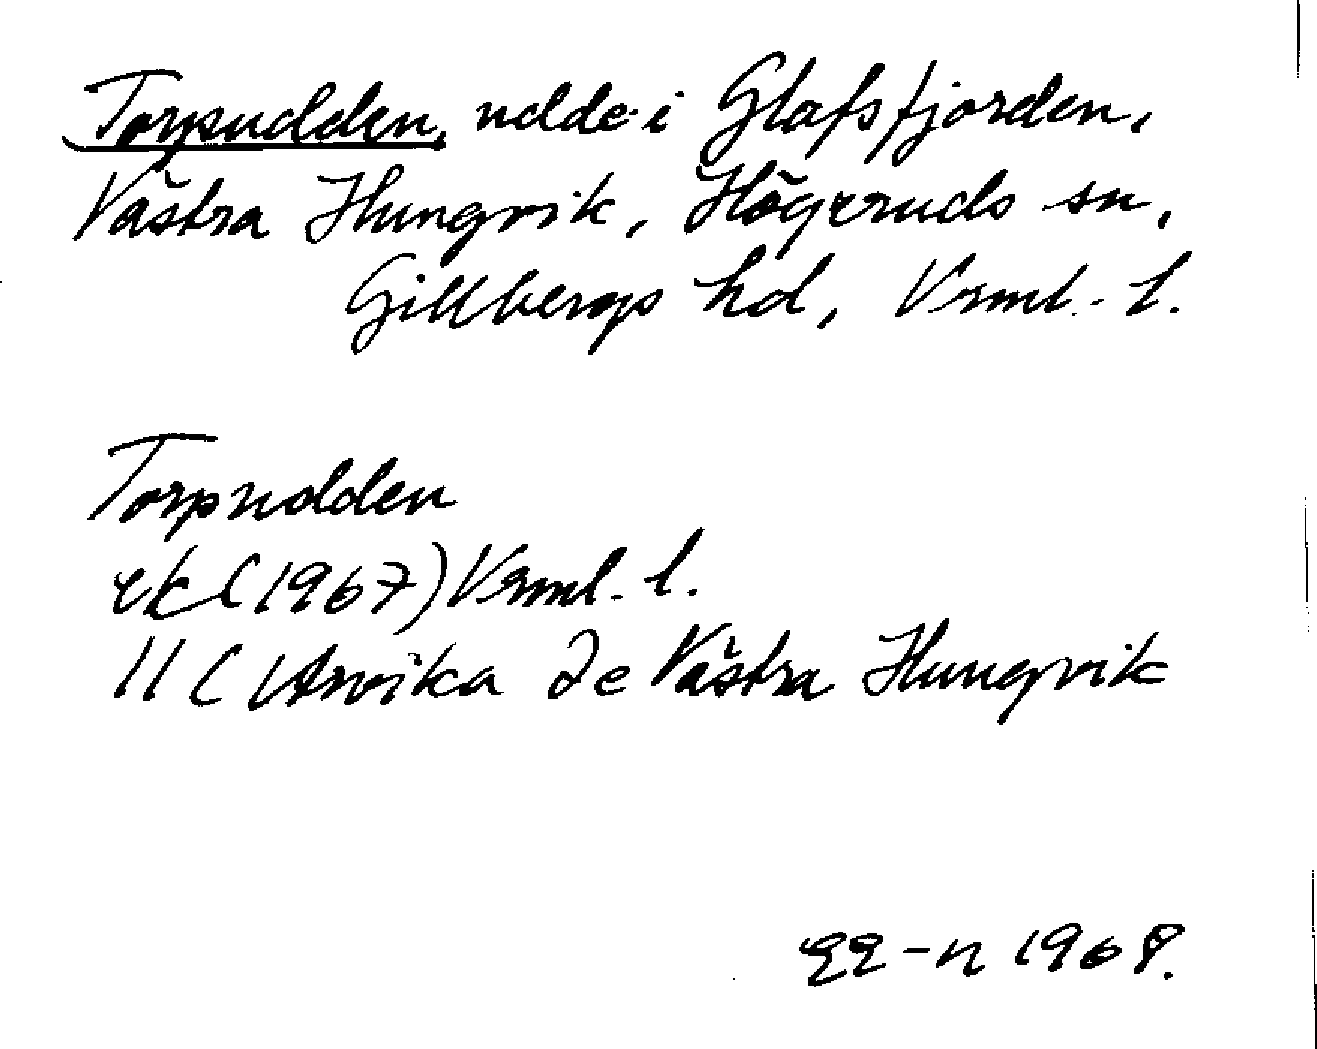 Torpudden, udde i Glafsfjorden,
Västra Hungvik, Högeruds sn,
Gillbergs hd, Vrml. l.
Torpudden
ek (1967) Vrml. l.
11 C Arvika 2e Västra Hungvik
1968.